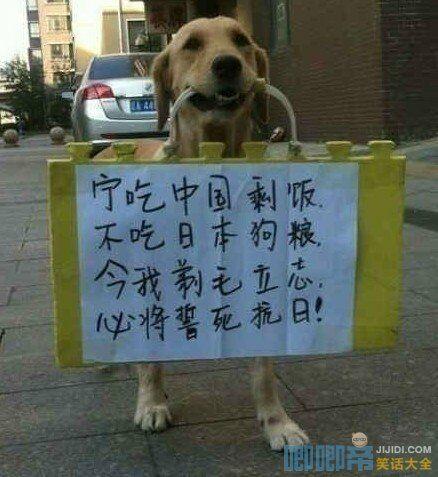 宁吃中国剩饭.
不吃日本狗粮.
今我剃毛立志.
必将誓死抗日!
唧唧帝
JIJIDI.COM
笑话大全